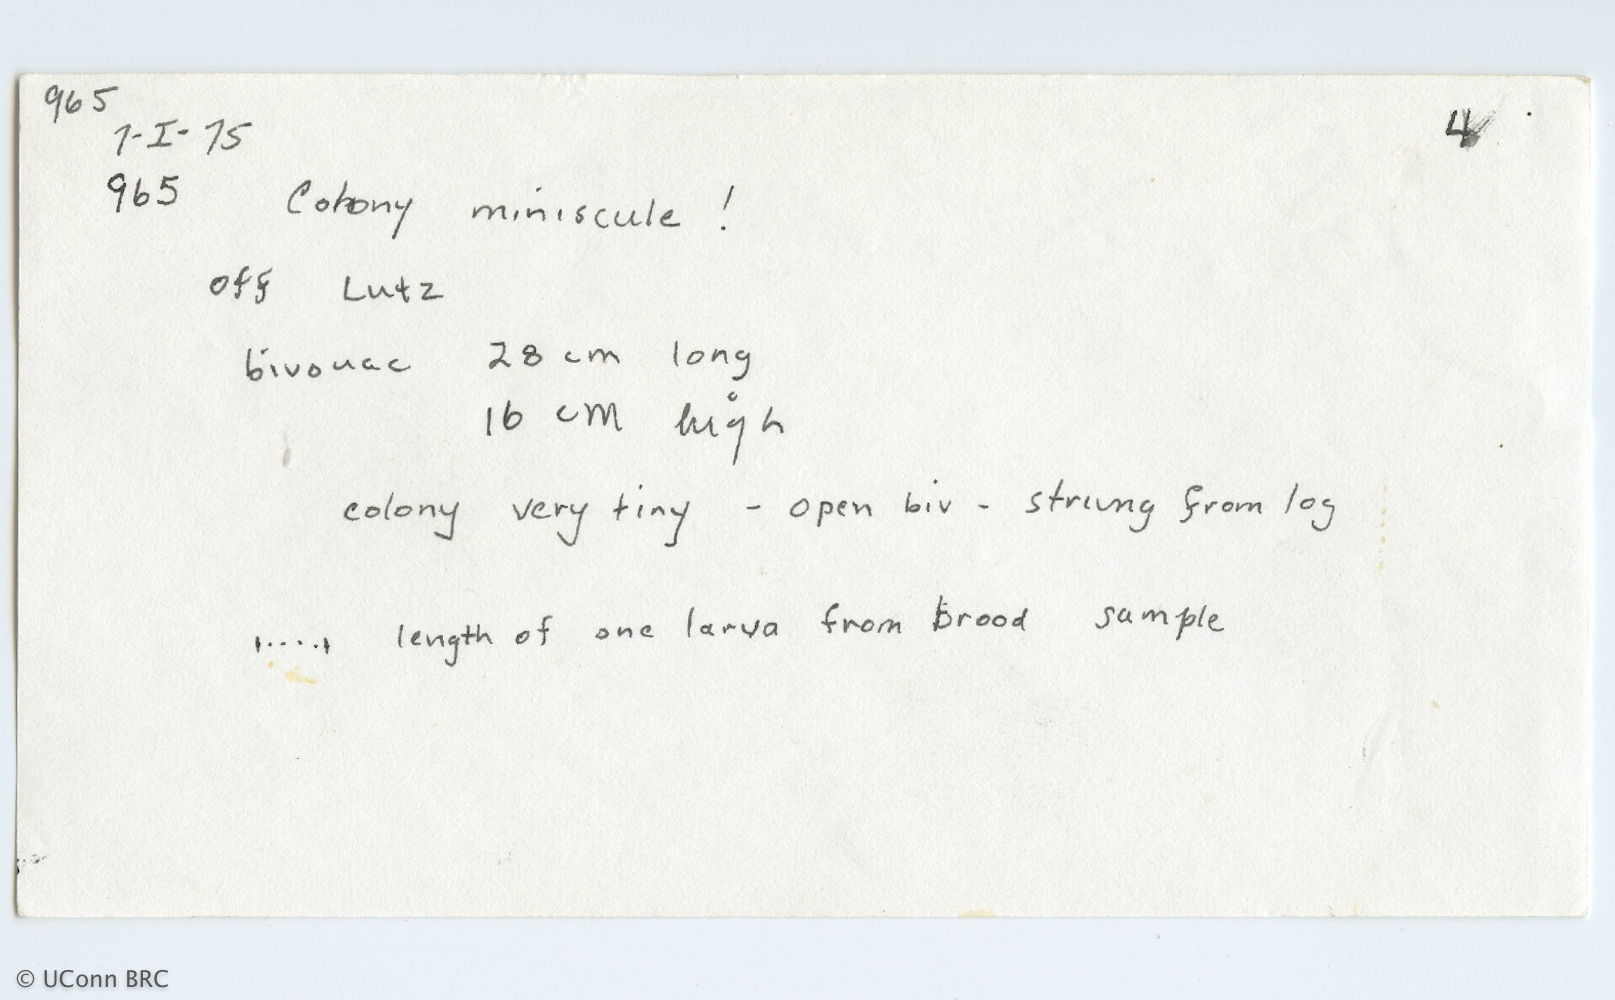 965
7-I-75
4
965 Colony miniscule !
off Lutz
bivouac 28 cm long
16 cm high
colony very tiny - open biv - strung from log
length of one larva from brood sample
© UConn BRC